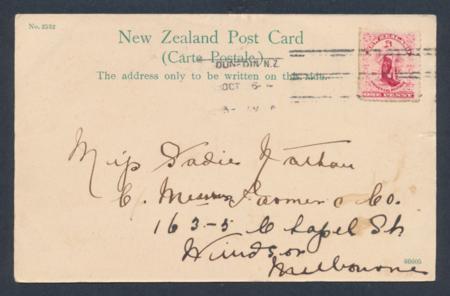 No. 2532
New Zealand Post Card
(Carte Postale.)
The address only to be written on this side.
DUNEDIN N.Z
OCT 5
NEW ZEALAND
ONE PENNY
Miss Sadie Nathan
C. Messrs Farmer & Co.
163-5 Chapel St
Windsor
Melbourne